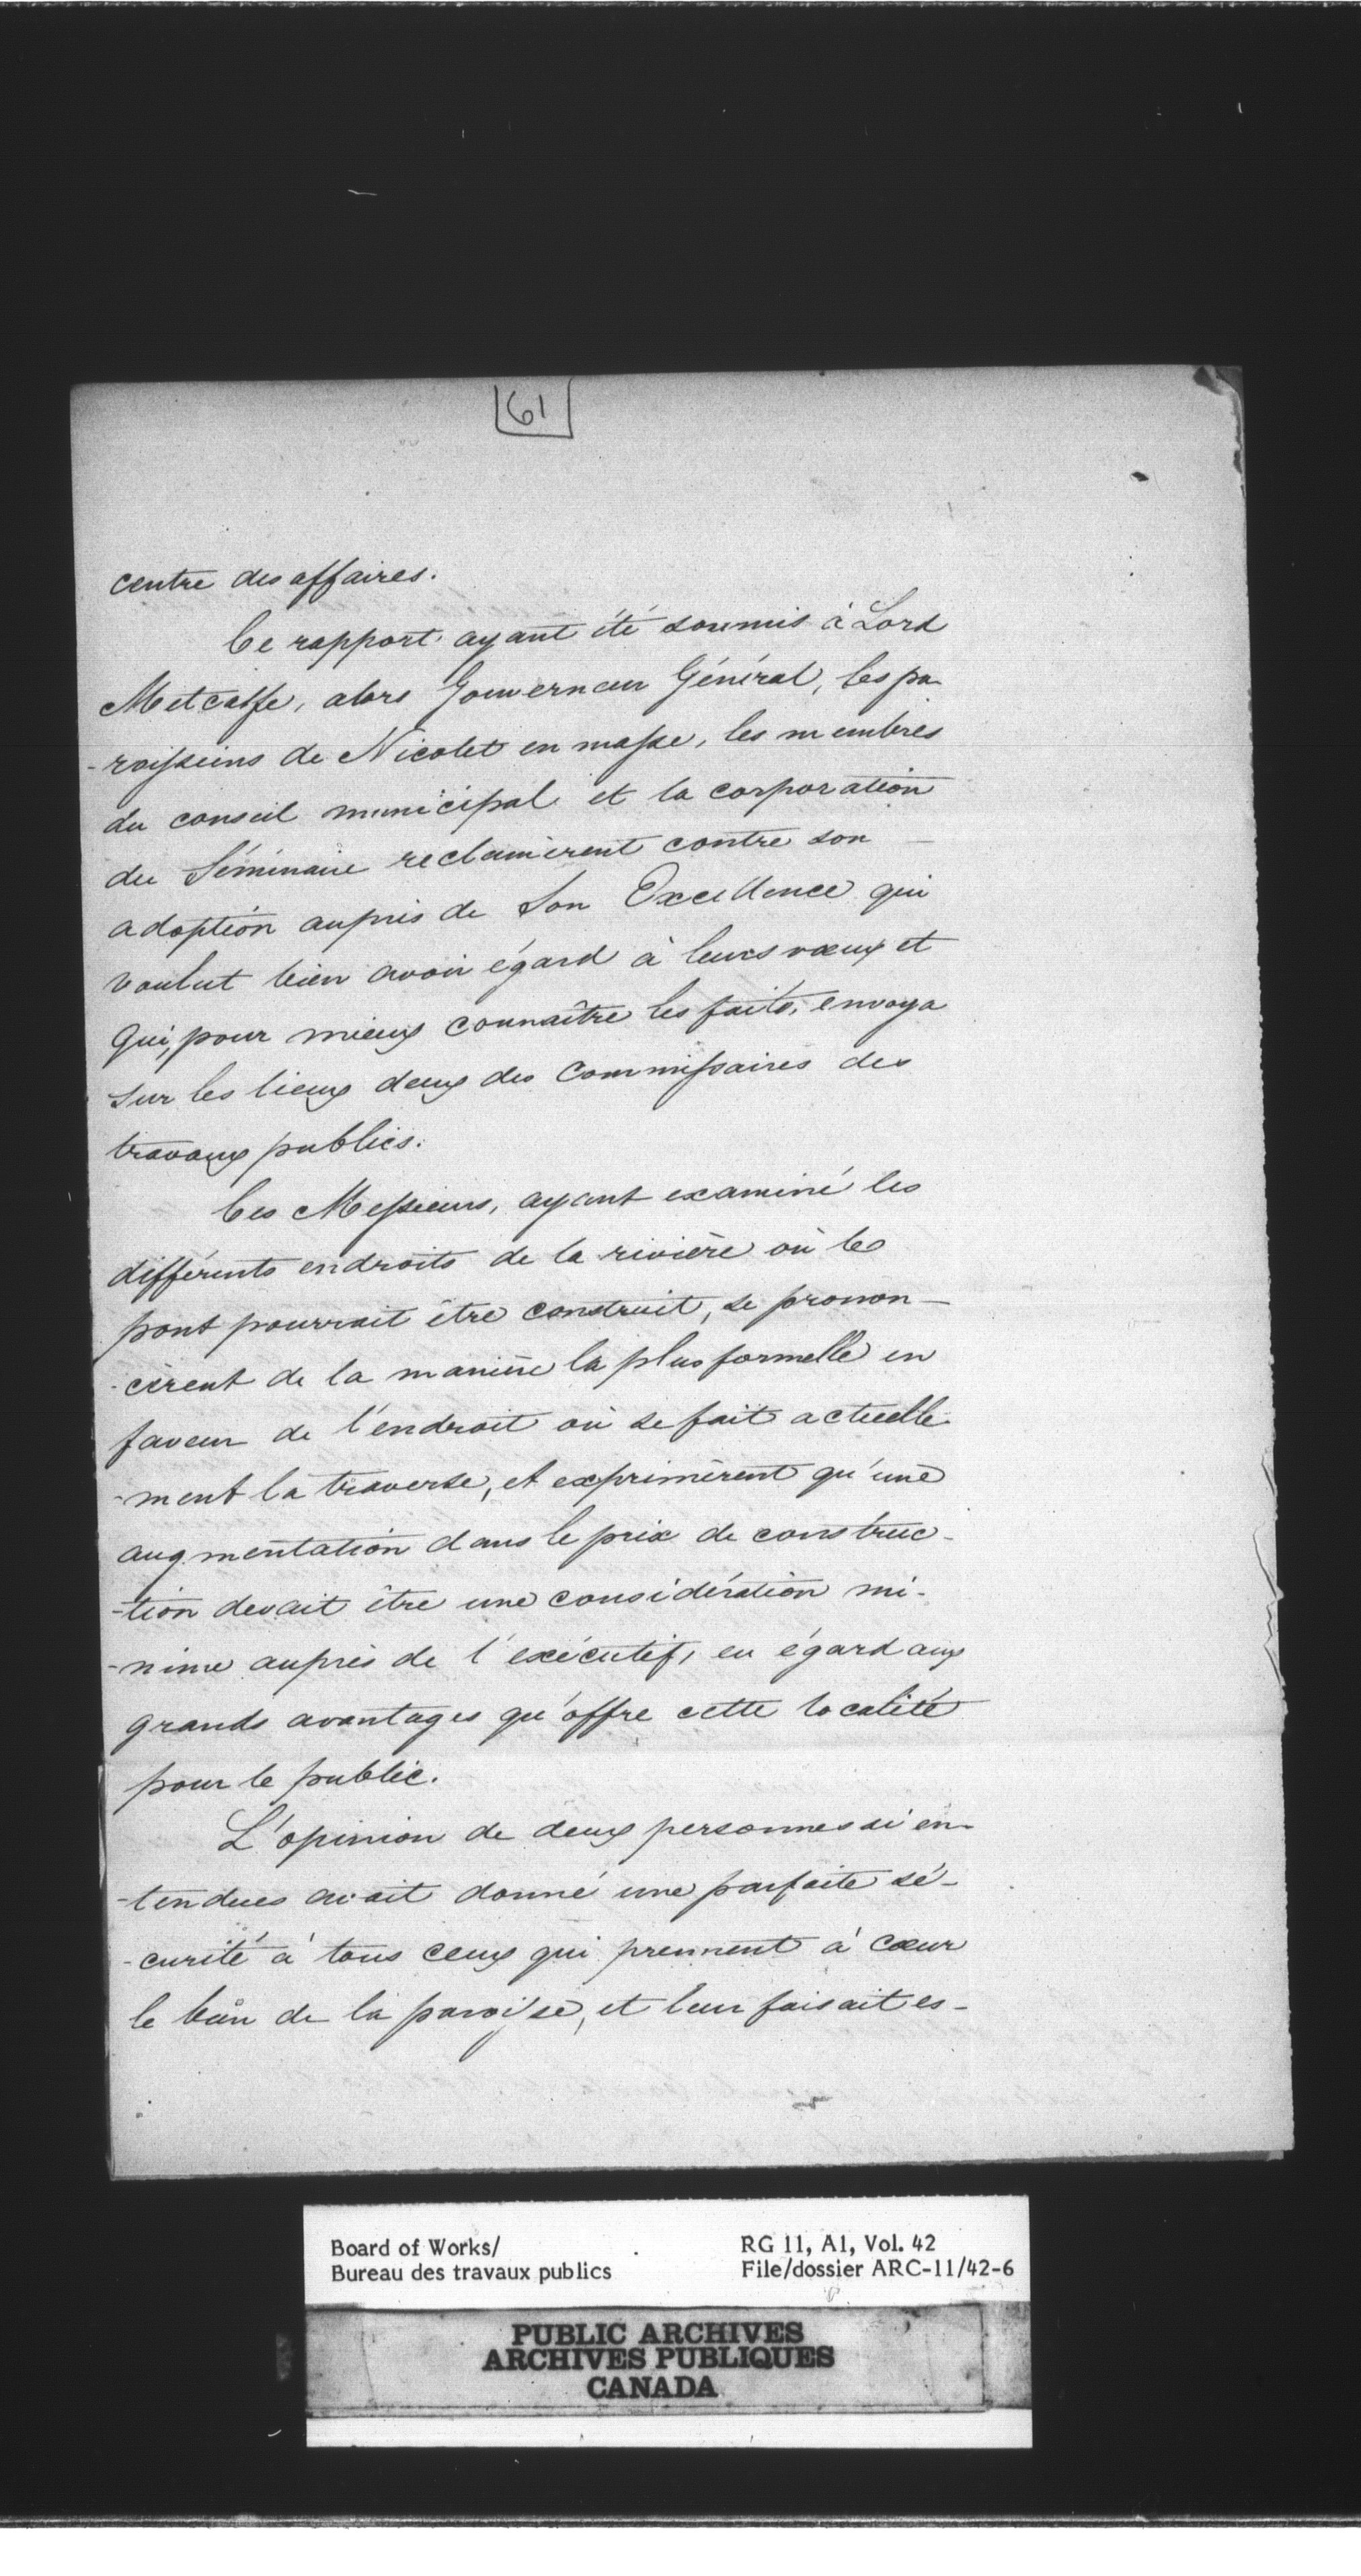 61
centre des affaires.
Ce rapport ayant été soumis à Lord
Metcalfe, alors Gouverneur Général, les pa-
-roissiens de Nicolet en masse, les membres
du conseil municipal et la corporation
du Séminaire reclamèrent contre son
adoption auprès de Son Excellence qui
voulut bien avoir égard à leurs vœux et
qui, pour mieux connaître les faits, envoya
sur les lieux deux des Commissaires des
travaux publics.
Ces Messieurs, ayant examiné les
différents endroits de la rivière où le
pont pourrait être construit, se pronon-
-cèrent de la manière la plus formelle en
faveur de l'endroit où se fait actuelle-
-ment la traverse, et exprimèrent qu'une
augmentation dans le prix de construc-
-tion devait être une considération mi-
-nime auprès de l'exécutif, eu égard aux
grands avantages qu'offre cette localité
pour le public.
L'opinion de deux personnes si en-
-tendues avait donné une parfaite sé-
-curité à tous ceux qui prennent à cœur
le bien de la paroisse, et leur faisait es-
Board of Works/
Bureau des travaux publics
RG 11, A1, Vol. 42
File/dossier ARC-11/42-6
PUBLIC ARCHIVES
ARCHIVES PUBLIQUES
CANADA